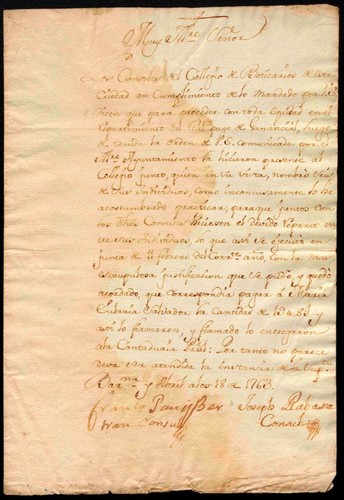 Muy Iltre Señor
Los Consules del Collegio de Boticarios de esta
Ciudad en Cumplimiento de lo Mandado por V.S.
Dicen que para proceder con toda equidad en el
Repartimiento del pago de Ganancial, luego
de tenida la Orden de V.S. comunicada por el
Iltre Ayuntamiento la hicieron presente al
Collegio junto, quien en su vista, nombró
de sus Individuos, como inconcusamente se ha
acostumbrado practicar, para que juntos con
los dhos Consules hiciessen el devido Reparto en
tre sus Individuos, lo que assi se executó en
Junta de 11 Febrero del Corrte año, con la mas
escrupulosa justificacion que se pudo, y quedó
acordado, que correspondia pagar á Maria
Eularia Salvador la Cantidad de
assi lo firmaron, y firmado lo entregaron
á la Contaduria Pral: Por tanto no parece
deva ser atendida la Instancia de la Sup
Barna y Abril a los 18 de 1763
Joseph Rabassa
Consul